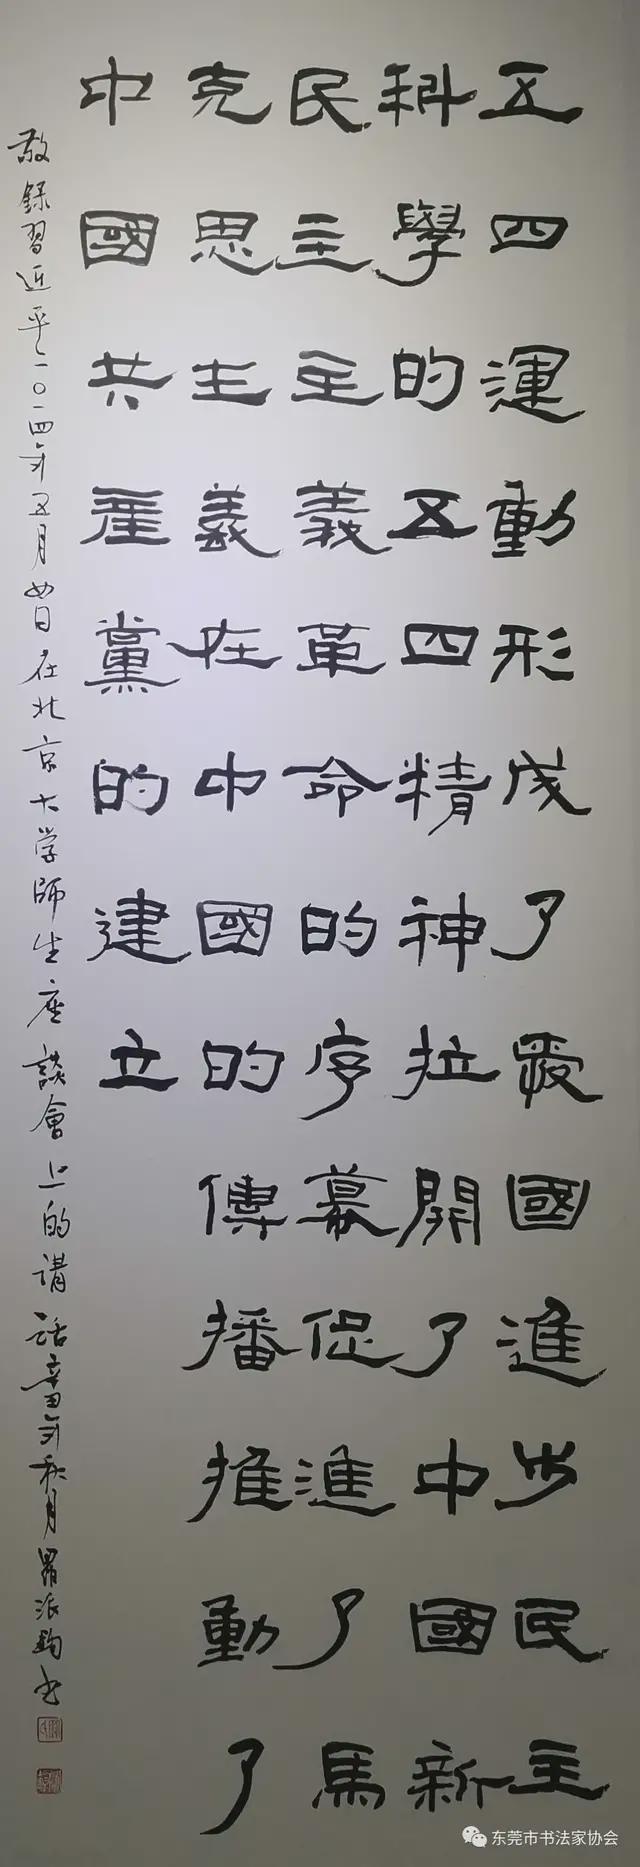 五四運動形成了愛國進步民主
科學的五四精神拉開了中國新
民主主義革命的序幕促進了馬
克思主義在中國的傳播推動了
中國共產黨的建立
敬録習近平二〇一四年五月四日在北京大学師生座談會上的講話辛丑年秋月羅派鈞書
东莞市书法家协会